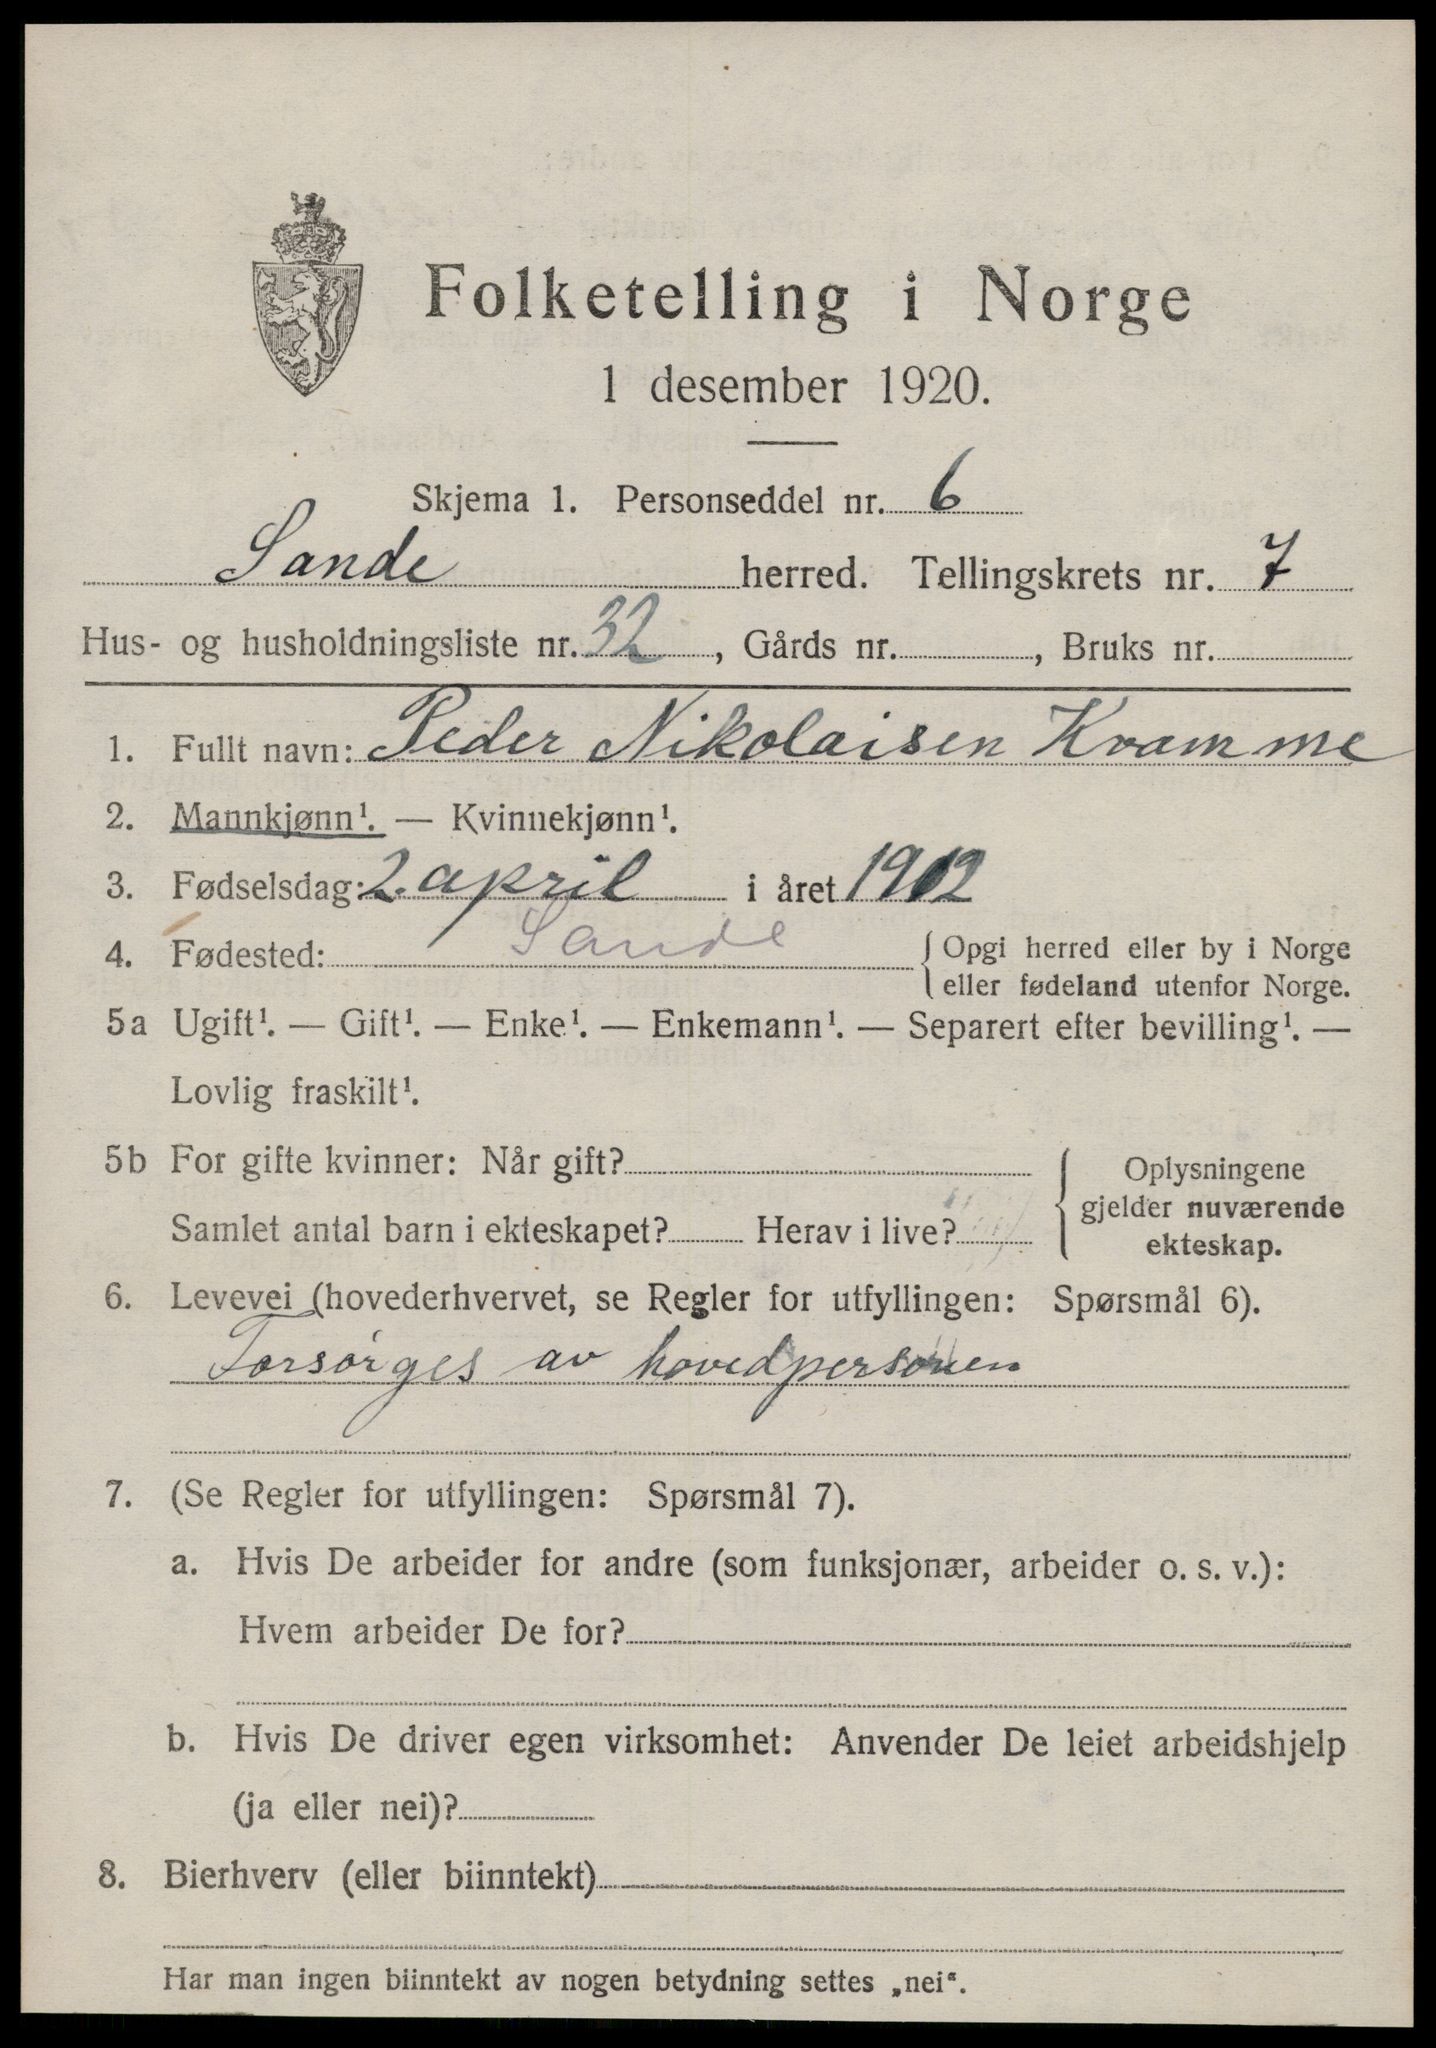 Folketelling i Norge
1 desember 1920.
Skjema 1. Personseddel nr. 6
Sande herred. Tellingskrets nr. 7
Hus- og husholdningsliste nr. 32, Gårds nr. , Bruks nr.
1. Fullt navn: Peder Nikolaisen Kvamme
2. Mannkjønn¹. — Kvinnekjønn¹.
3. Fødselsdag: 2. april i året 1912
4. Fødested: Sande { Opgi herred eller by i Norge
eller fødeland utenfor Norge.
5a Ugift¹. — Gift¹. — Enke¹. — Enkemann¹. — Separert efter bevilling¹. —
Lovlig fraskilt¹.
5b For gifte kvinner: Når gift? { Oplysningene
gjelder nuværende
Samlet antal barn i ekteskapet? Herav i live?
ekteskap.
6. Levevei (hovederhvervet, se Regler for utfyllingen: Spørsmål 6).
Forsørges av hovedpersonen
7. (Se Regler for utfyllingen: Spørsmål 7).
a. Hvis De arbeider for andre (som funksjonær, arbeider o. s. v.):
Hvem arbeider De for?
b. Hvis De driver egen virksomhet: Anvender De leiet arbeidshjelp
(ja eller nei)?
8. Bierhverv (eller biinntekt)
Har man ingen biinntekt av nogen betydning settes „nei“.